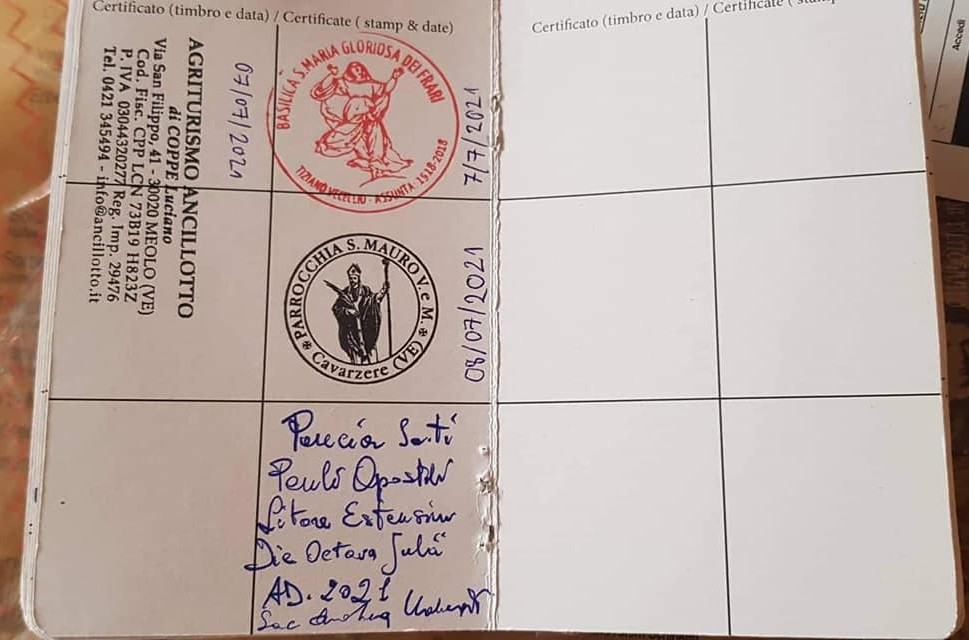 Certificato (timbro e data) / Certificate ( stamp & date)
AGRITURISMO ANCILLOTTO
di COPPE Luciano
Via San Filippo, 41 - 30020 MEOLO (VE)
Cod. Fisc. CPP LCN 73B19 H823Z
P. IVA 03044320277 Reg. Imp. 29476
Tel. 0421 345494 - info@ancillotto.it
07/07/2021
BASILICA S. MARIA GLORIOSA DEI FRARI
TIZIANO VECELLIO - ASSUNTA 1518-2018
7/7/2021
PARROCCHIA S. MAURO V. e M.
Cavarzere (VE)
08/07/2021
Sancti
Pauli Apostoli
Litore
Die Octava Julii
AD. 2021
Sac
Certificato (timbro e data) / Certificate ( stamp
Accedi